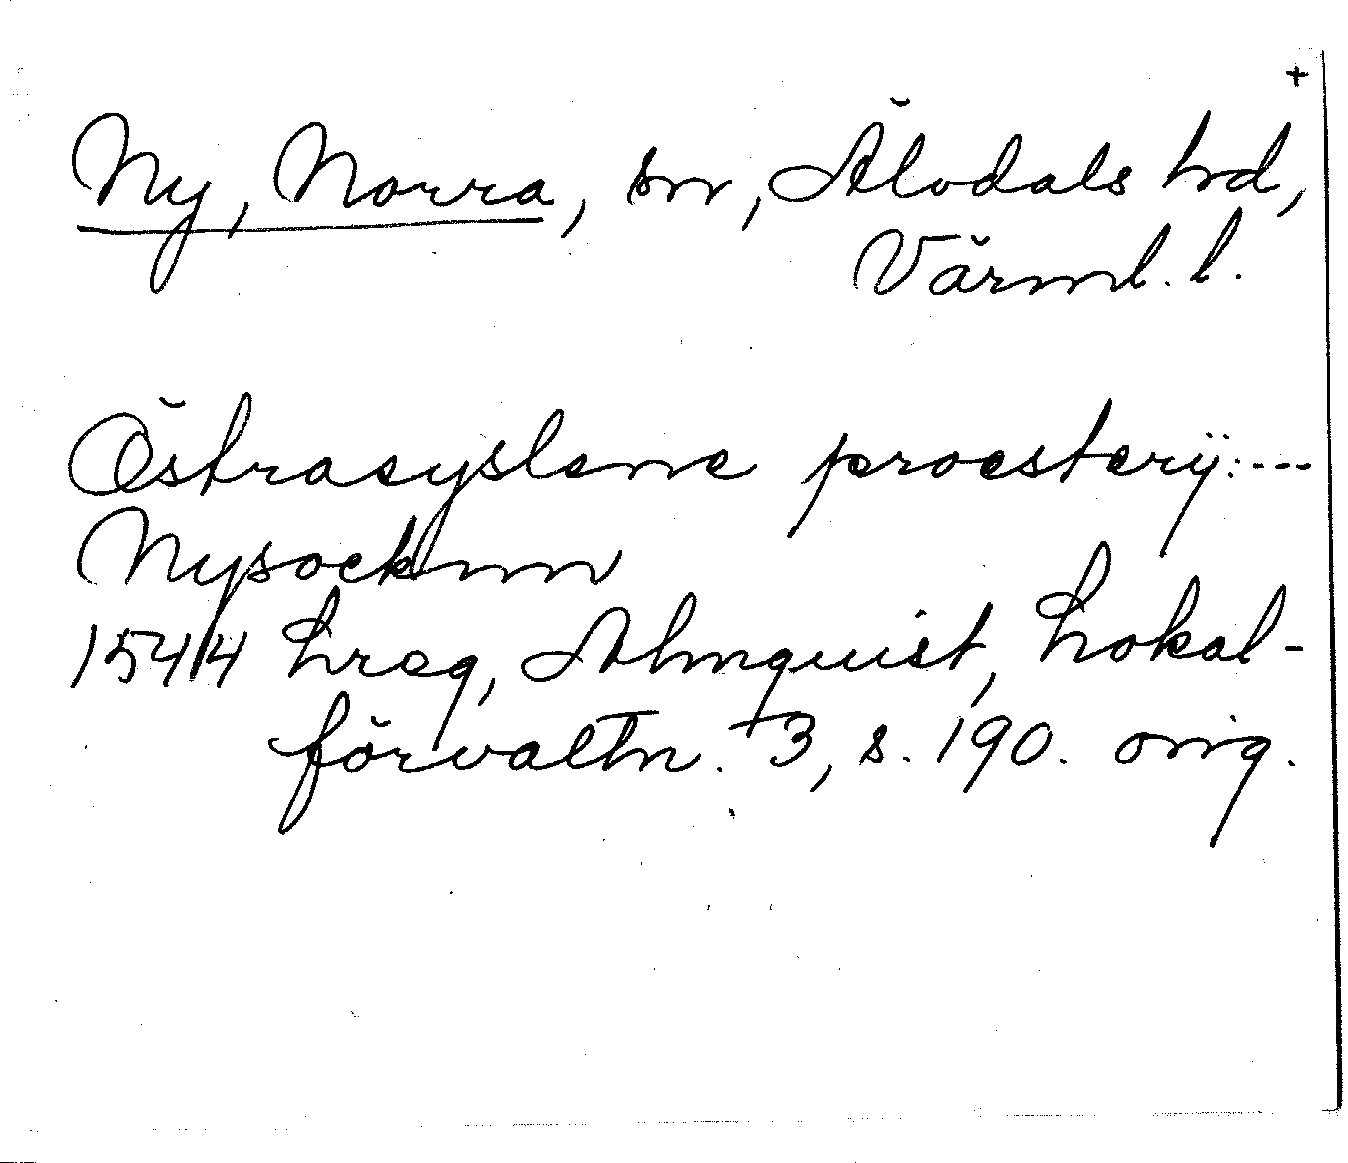 +
Ny, Norra, sn, Älvdals hd,
Värml. l.
Östrasyslene proestery: ---
Nysocknn
1544 hreg, Almquist, Lokal-
förvaltn. 3, s. 190. orig.